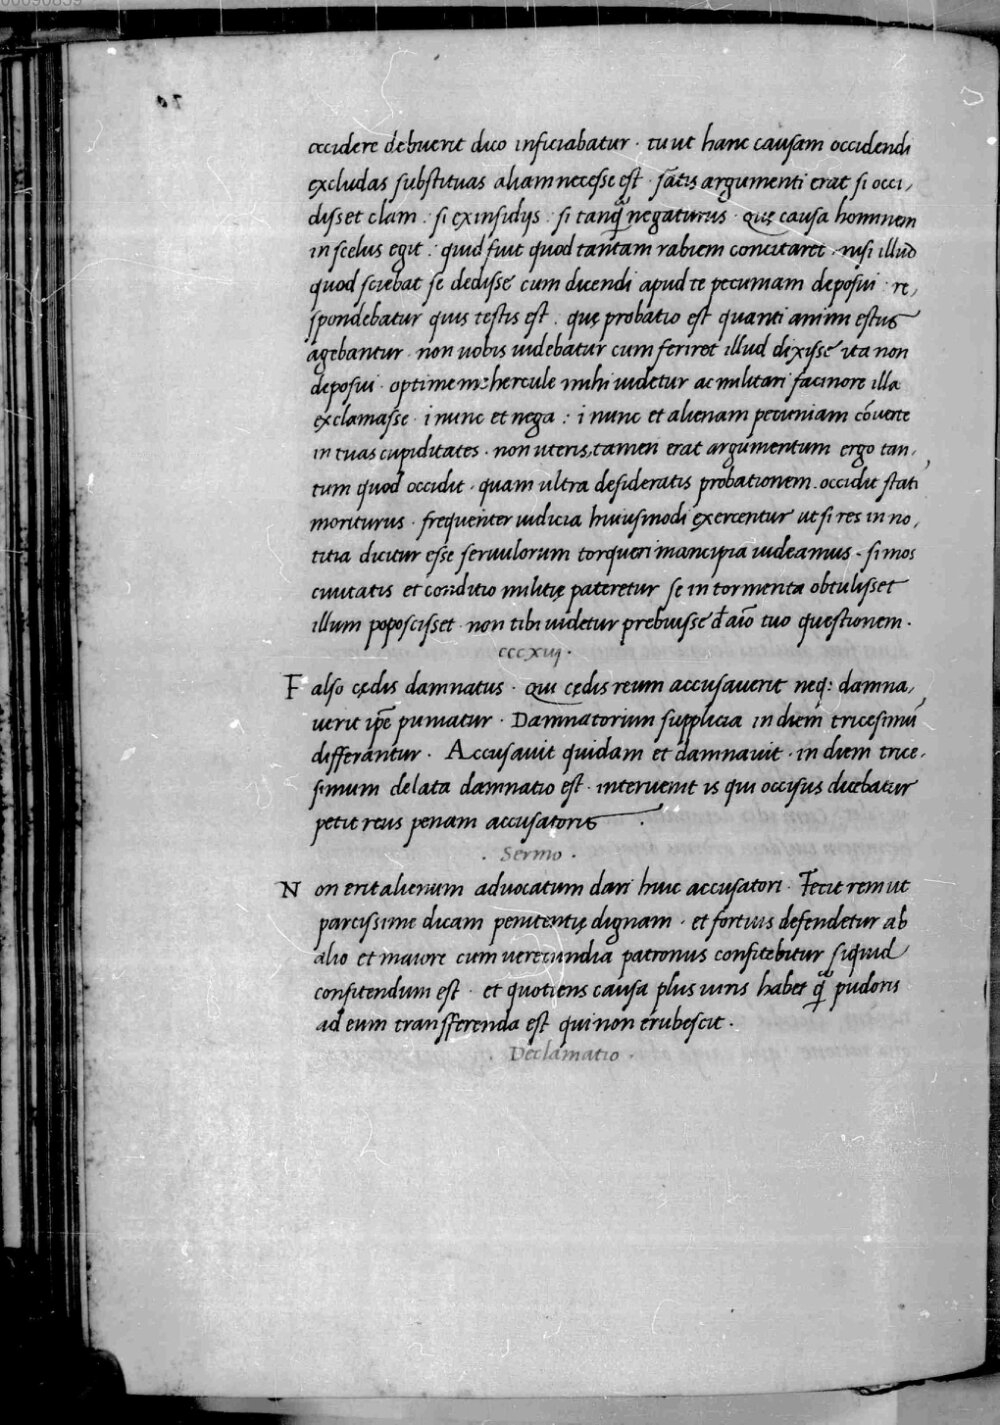 00090839
occidere debuerit dico inficiabatur · tu ut hanc causam occidendi
excludas substituas aliam necesse est · satis argumenti erat si occi,
disset clam : si ex insidijs : si tanq̃ negaturus · Quę causa hominem
in scelus egit : quid fuit quod tantam rabiem concitaret · nisi illud
quod sciebat se dedisse cum dicendi apud te pecuniam deposui : re,
spondebatur quis testis est . quę probatio est quanti animi estus
agebantur · non uobis uidebatur cum feriret illud dixisse ita non
deposui · optime mehercule mihi uidetur ac militari facinore illa
exclamasse · i nunc et nega : i nunc et alienam pecuniam cõuerte
in tuas cupiditates · non uteris, tamen erat argumentum ergo tan,
tum quod occidit · quam ultra desideratis probationem . occidit stati
moriturus · frequenter iudicia huiusmodi exercentur ut si res in no,
titia dicitur esse seruulorum torqueri mancipia uideamus · si mos
ciuitatis et conditio militię pateretur se in tormenta obtulisset
illum poposcisset · non tibi uidetur prebuisse d̄ aĩo tuo questionem ·
cccxiij ·
F also cędis damnatus · Qui cędis reum accusauerit neq: damna,
uerit ip̃e puniatur · Damnatorum supplicia in diem tricesimũ
differantur · Accusauit quidam et damnauit · in diem trice,
simum delata damnatio est · interuenit is qui occisus dicebatur
petit reus penam accusatoris ·
· Sermo ·
N on erit alienum aduocatum dari huic accusatori · Fecit rem ut
parcissime dicam penitentię dignam · et fortius defendetur ab
alio et maiore cum uerecundia patronus confitebitur siquid
confitendum est · et quotiens causa plus iuris habet q̃ pudoris
ad eum transfferenda est qui non erubescit ·
· Declamatio ·